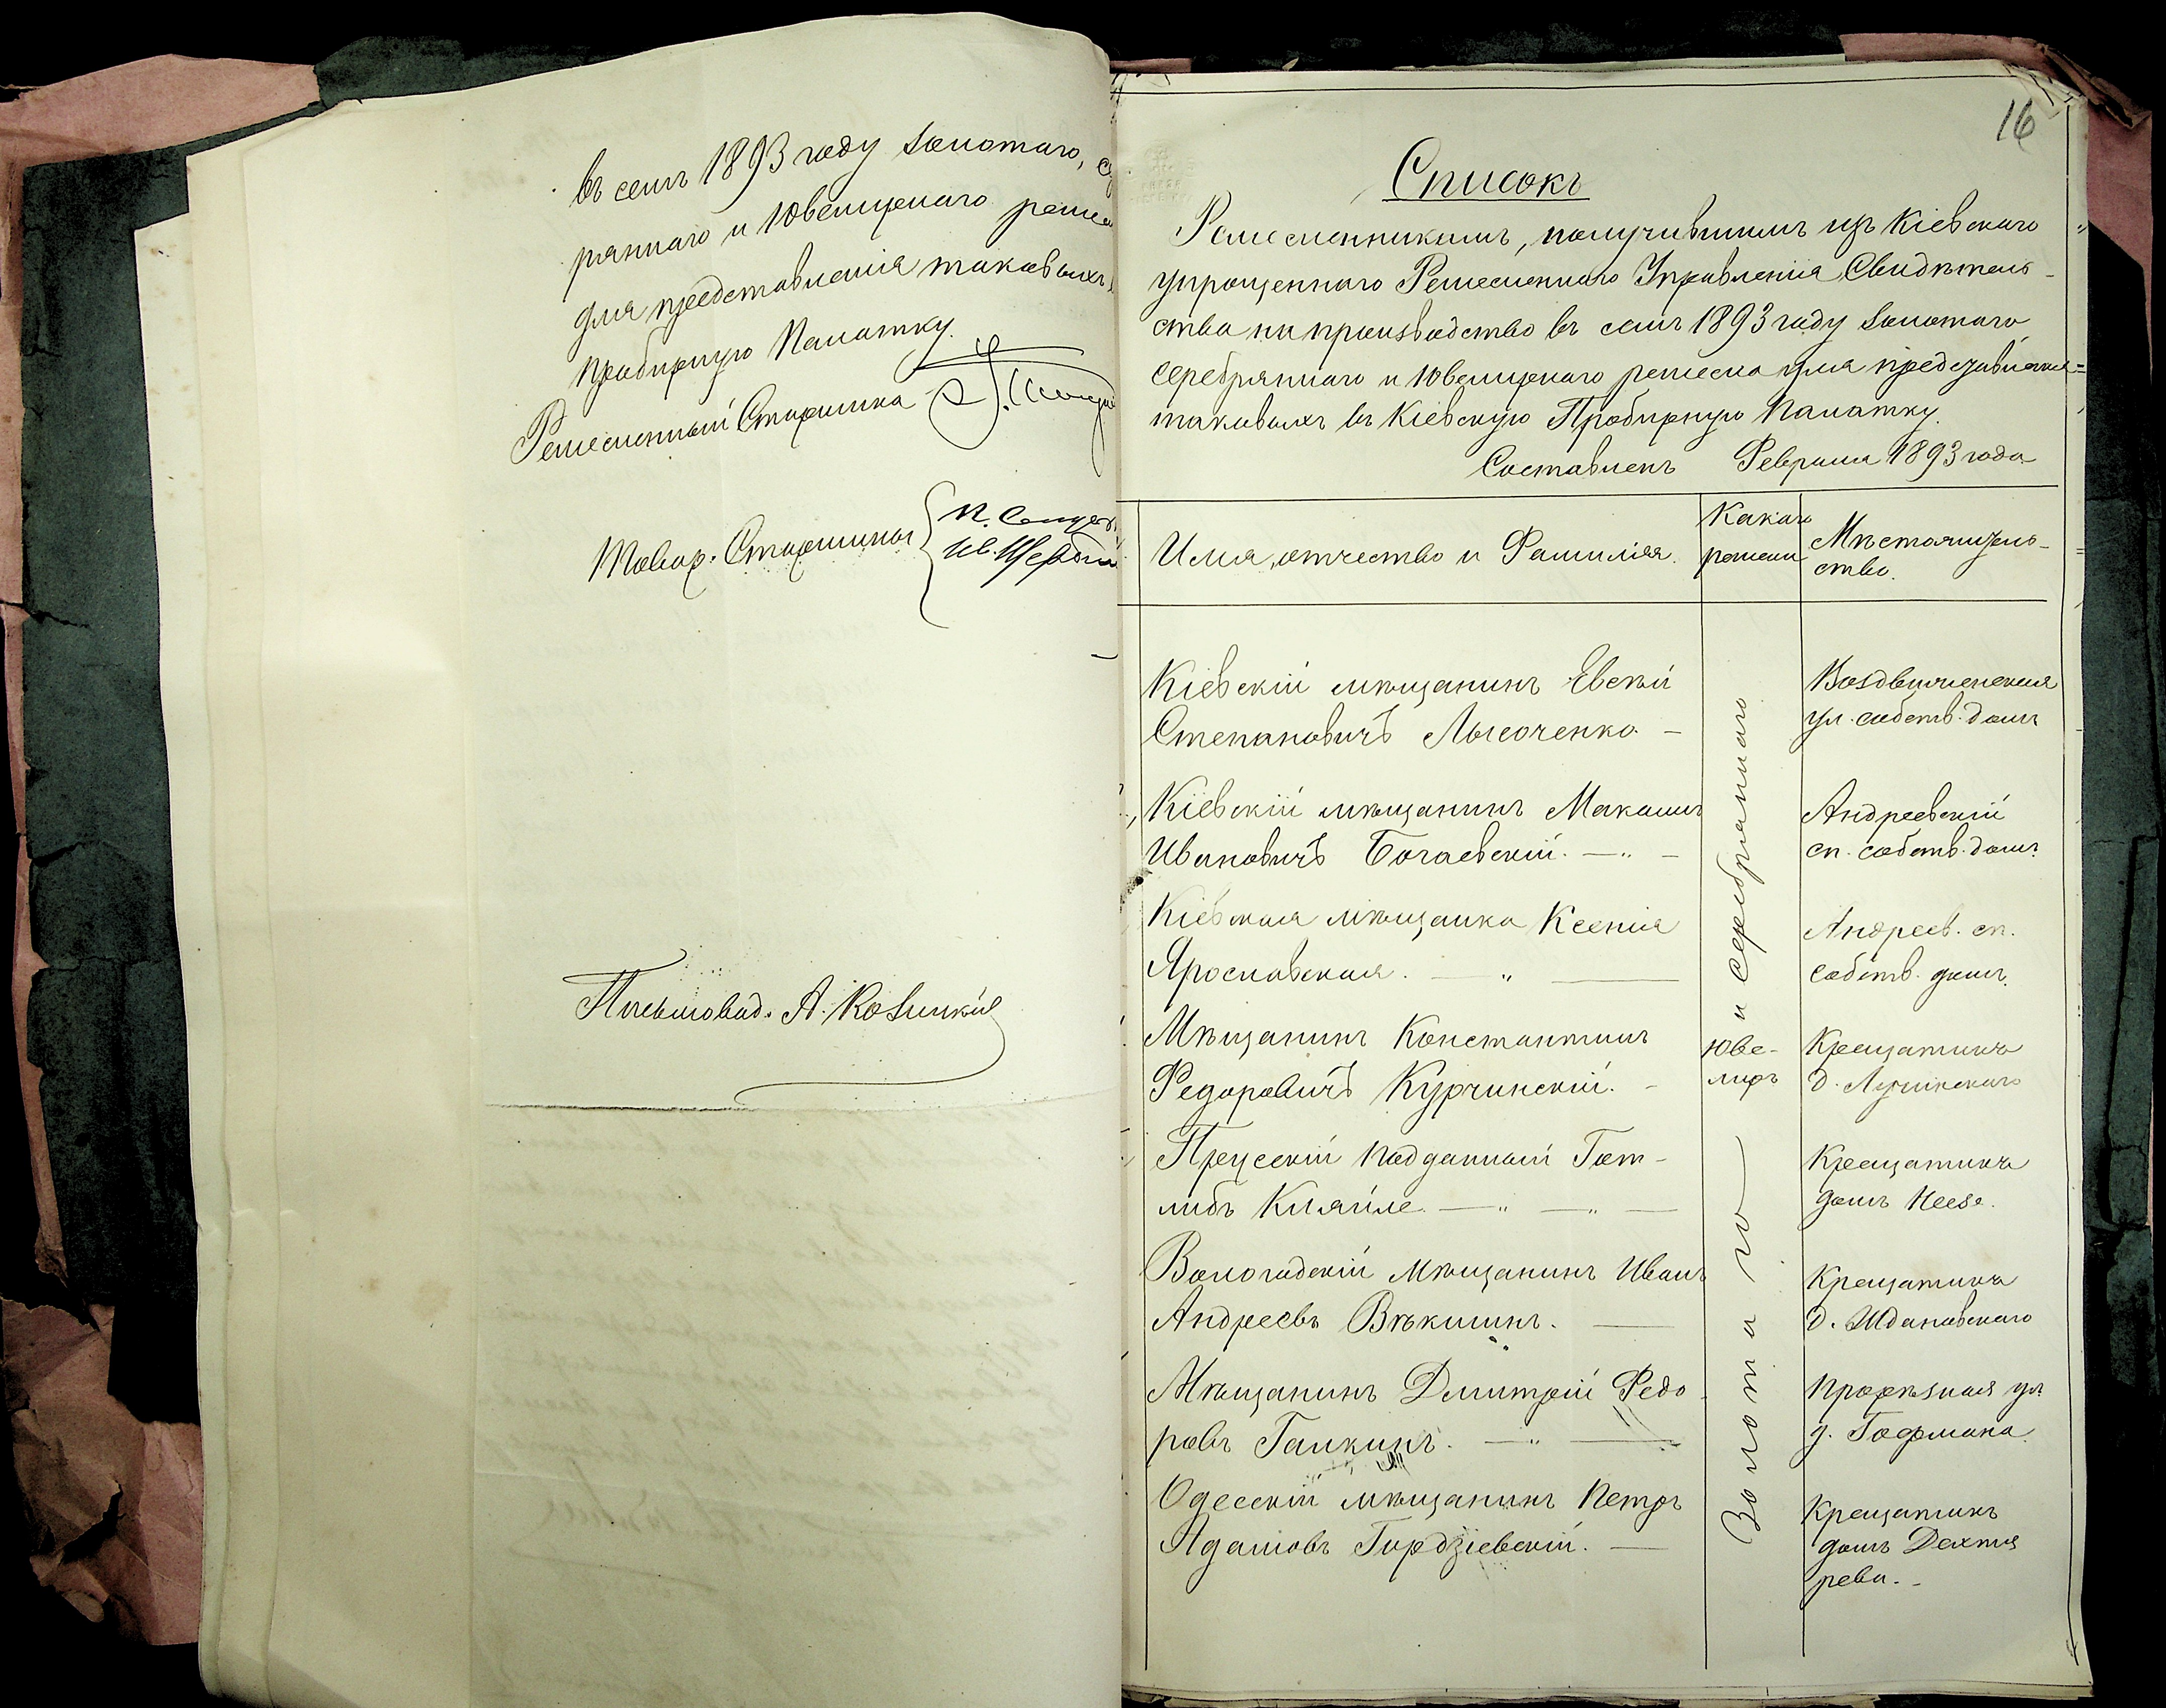 въ семъ 1893 году золотаго, се
ряннаго и Ювелирнаго ремес
для представленія таковыхъ
пробирную Палатку.
Ремесленный Старшина
Товар. Старшины
Письмовод. А. Козицкій
16
Списокъ
Ремесленникамъ, получившимъ изъ Кіевскаго
упрощеннаго Ремесленнаго Управленія Свидѣтель-
ства на производство въ семъ 1893 году золотаго
серебряннаго и Ювелирнаго ремесла для представленія
таковыхъ въ Кіевскую Пробирную Палатку.
Составленъ Февраля 1893 года
Имя, отчество и Фамилія.
Какаго
ремесла
Мѣстожитель-
ство.
Кіевскій мѣщанинъ Евсѣй
Степановичъ Лысоченко. —
Воздвиженская
ул. собств. домъ
Кіевскій мѣщанинъ Максимъ
Ивановичъ Богаевскій. — „ —
Андреевскій
сп. собств. домъ.
Кіевская мѣщанка Ксенія
Ярославская. — „ —
Андреев. сп.
собств. домъ.
Мѣщанинъ Константинъ
Федоровичъ Курчинскій. —
Юве-
лиръ
Крещатикъ
д.
Прусскій подданный Гот-
либъ Кляйле. — „ — „ —
Крещатикъ
домъ Неезе.
Вологодскій Мѣщанинъ Иванъ
Андреевъ Вѣкшинъ. —
Крещатикъ
д. Ждановскаго
Мѣщанинъ Дмитрій Федо-
ровъ Галкинъ. — „ —
Прорѣзная ул.
д. Гофмана.
Одесскій мѣщанинъ Петръ
Адамовъ Гордзіевскій. —
Крещатикъ
домъ Дехтя
рева. -
Золотаго и серебряннаго